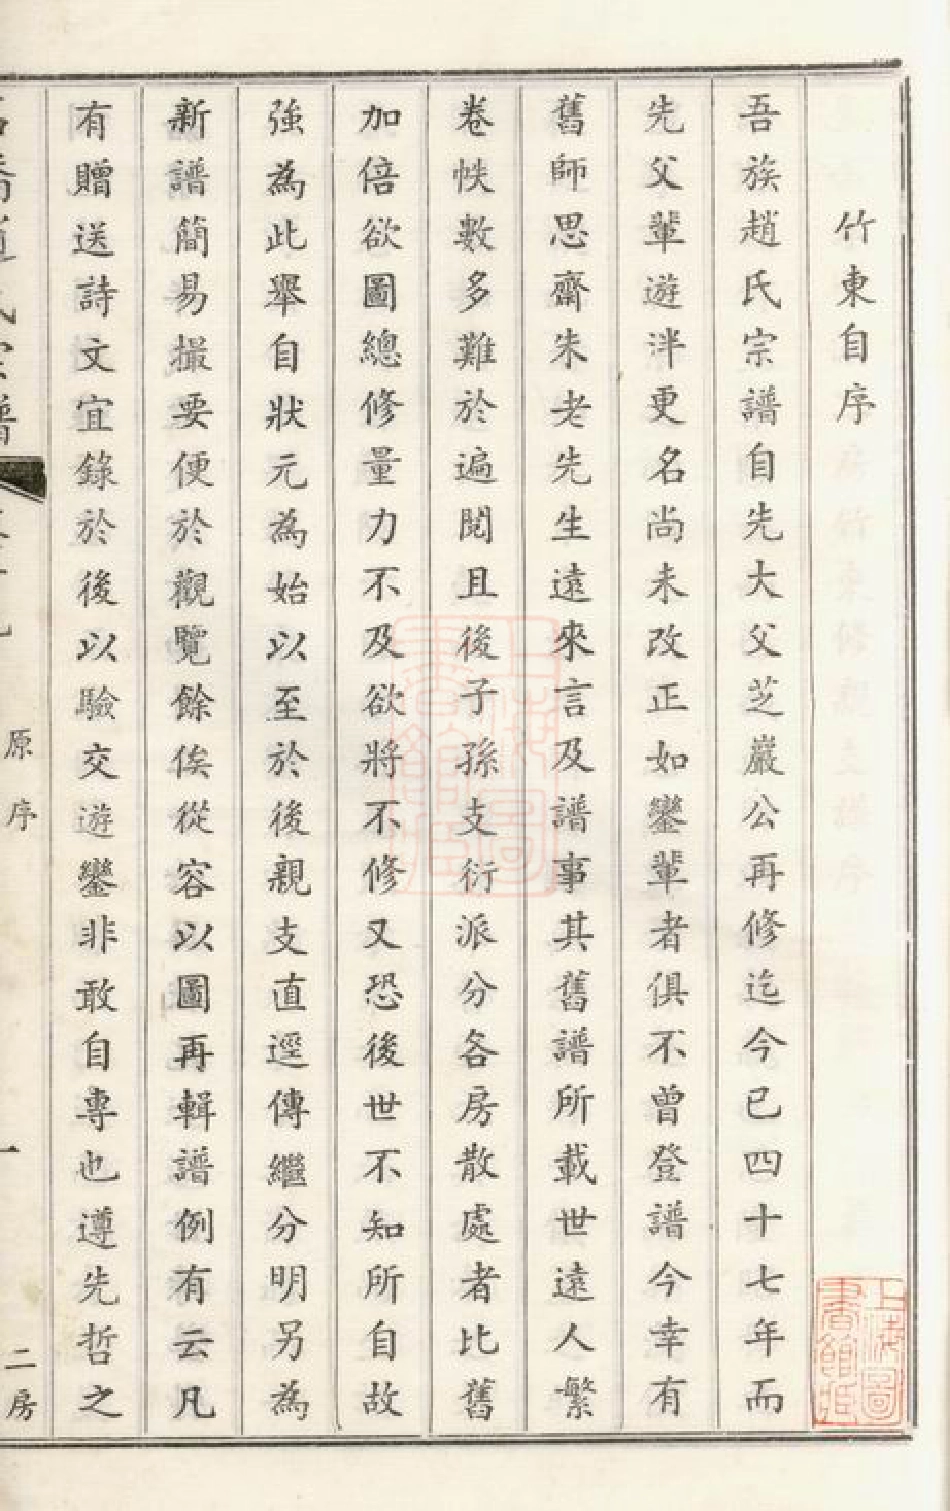 竹東自序
吾族趙氏宗譜自先大父芝巖公再修迄今已四十七年而
先父輩遊泮更名尚未改正如鑾輩者俱不曾登譜今幸有
舊師思齋朱老先生遠來言及譜事其舊譜所載世遠人繁
卷帙數多難於遍閱且後子孫支衍派分各房散處者比舊
加倍欲圖總修量力不及欲將不修又恐後世不知所自故
強為此舉自狀元為始以至於後親支直逕傳繼分明另為
新譜簡易撮要便於觀覽餘俟從容以圖再輯譜例有云凡
有贈送詩文宜錄於後以驗交遊鑾非敢自專也遵先哲之
趙氏宗譜
原序
一
二房
上海圖書館藏